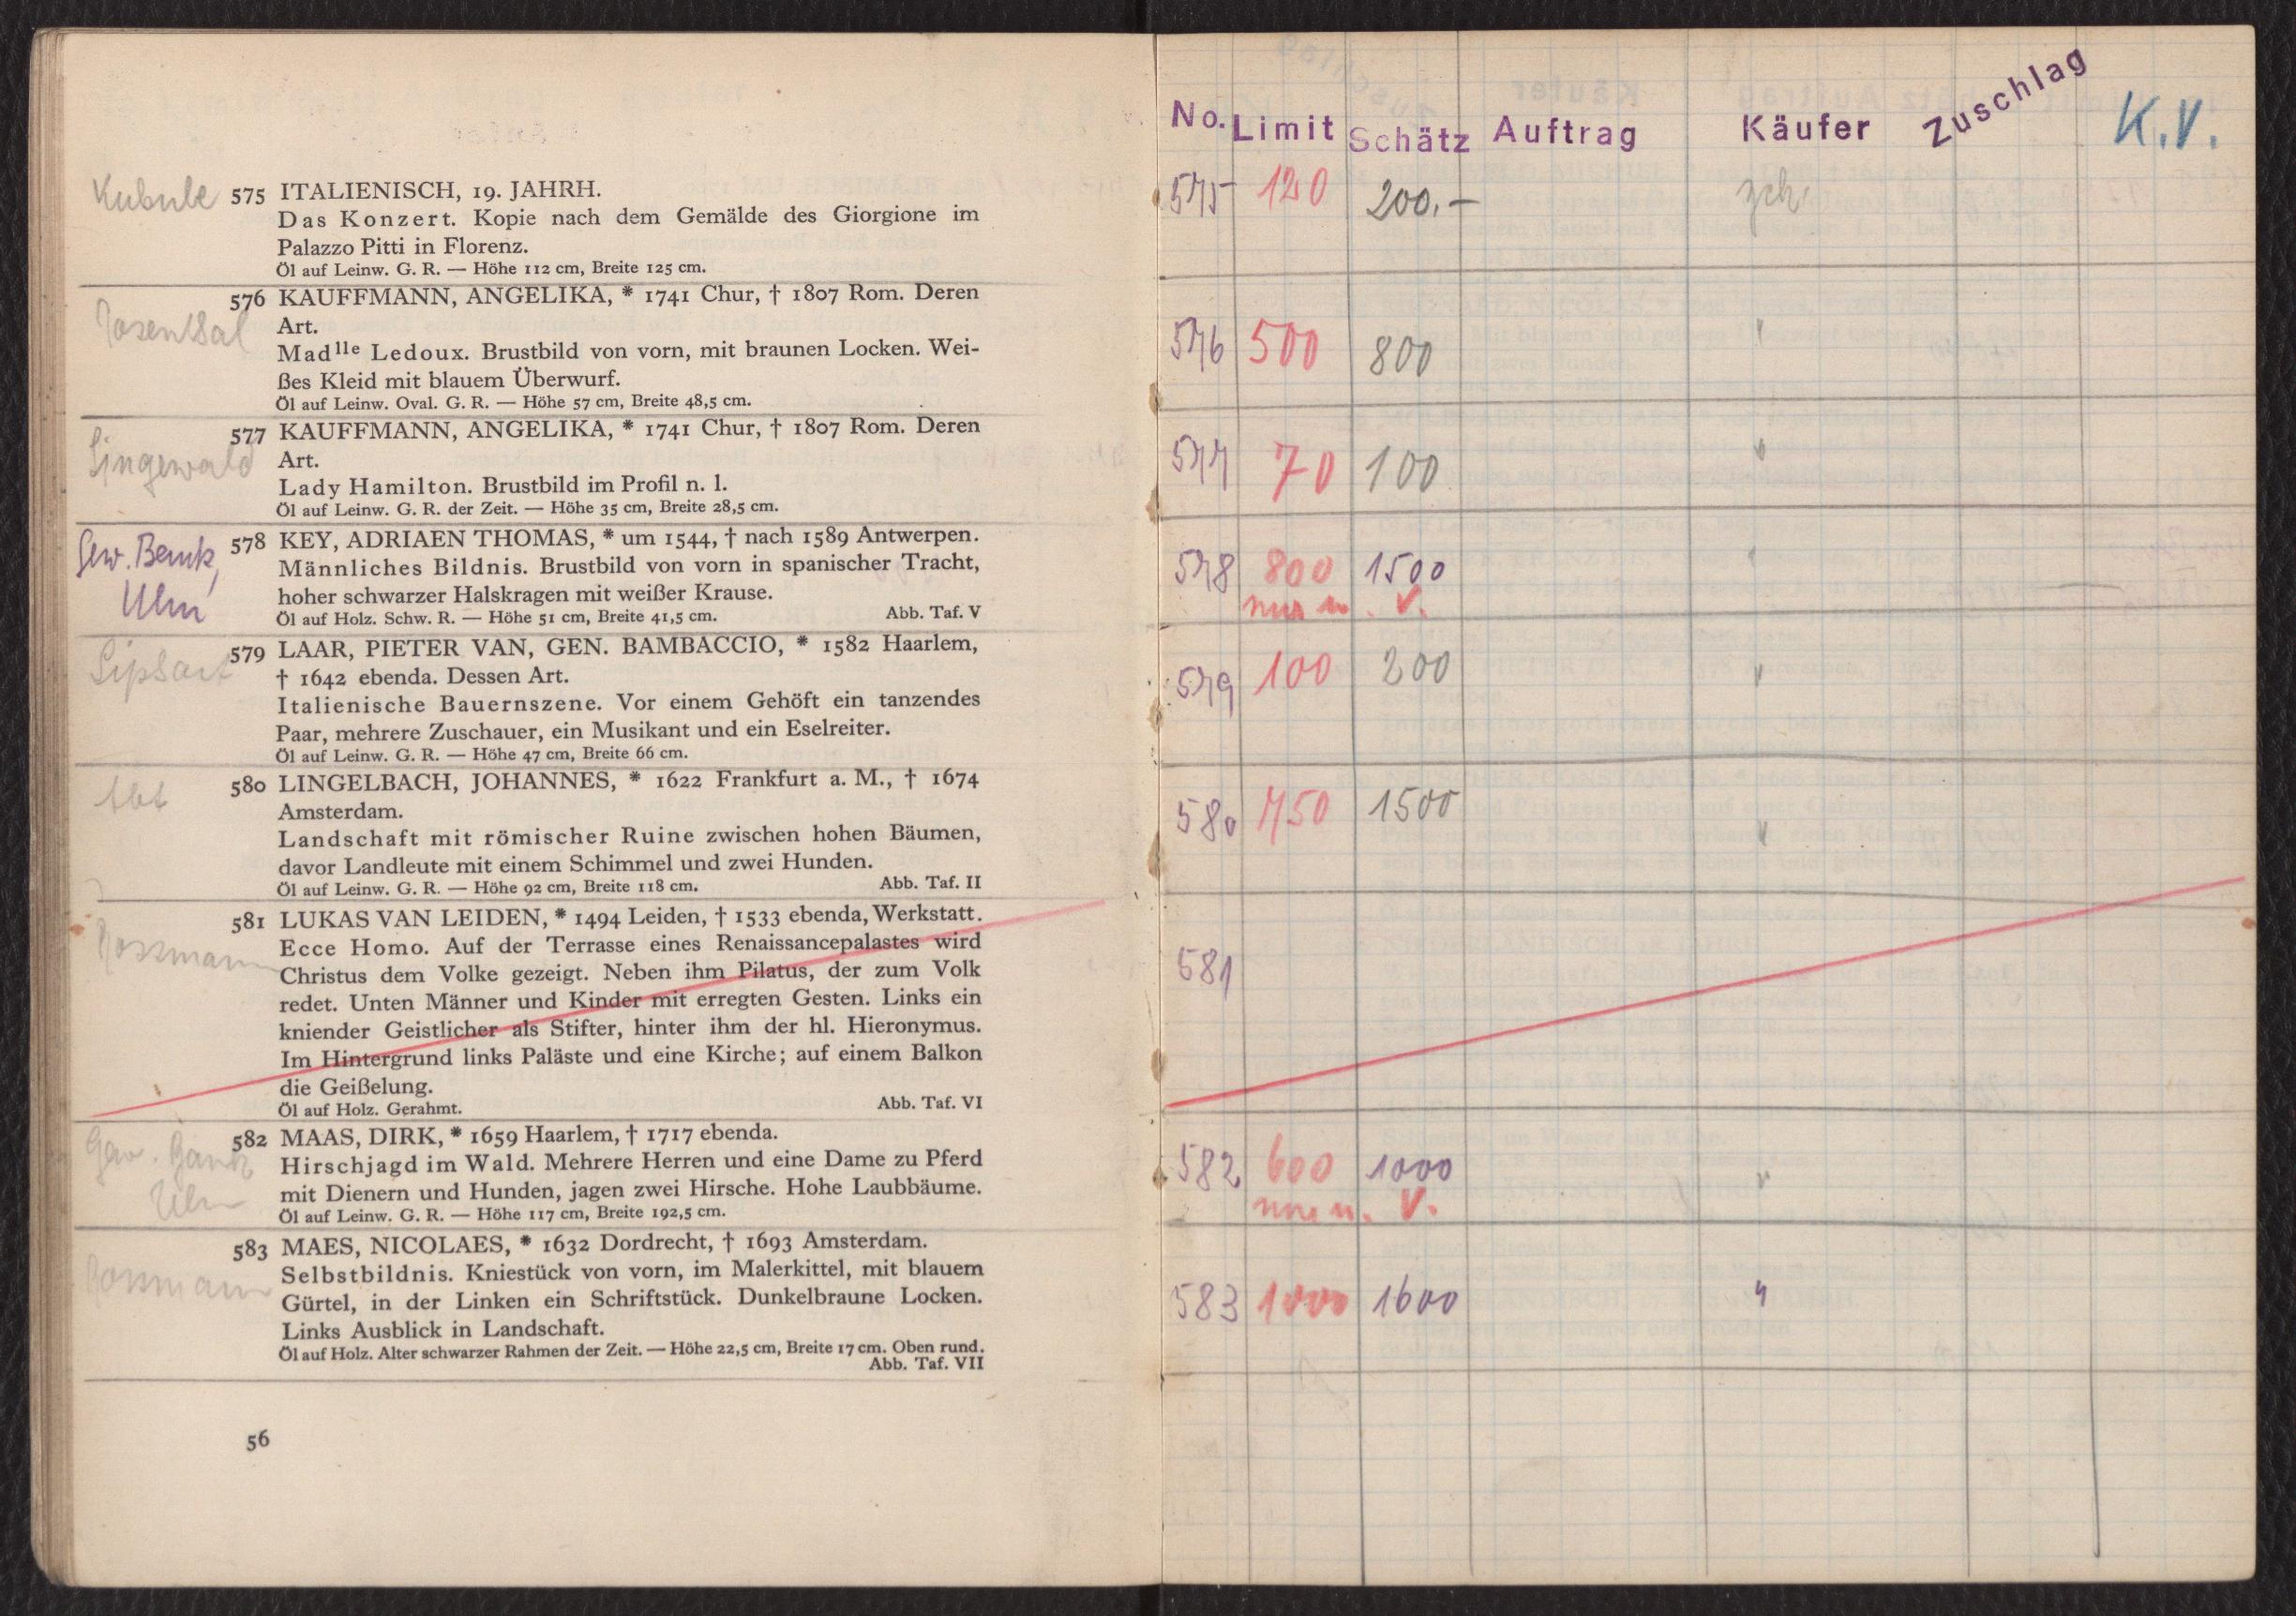 Kubule
575 ITALIENISCH, 19. JAHRH.
Das Konzert. Kopie nach dem Gemälde des Giorgione im
Palazzo Pitti in Florenz.
Öl auf Leinw. G. R. — Höhe 112 cm, Breite 125 cm.
Rosenthal
576 KAUFFMANN, ANGELIKA, * 1741 Chur, † 1807 Rom. Deren
Art.
Madlle Ledoux. Brustbild von vorn, mit braunen Locken. Wei-
ßes Kleid mit blauem Überwurf.
Öl auf Leinw. Oval. G. R. — Höhe 57 cm, Breite 48,5 cm.
Singewald
577 KAUFFMANN, ANGELIKA, * 1741 Chur, † 1807 Rom. Deren
Art.
Lady Hamilton. Brustbild im Profil n. l.
Öl auf Leinw. G. R. der Zeit. — Höhe 35 cm, Breite 28,5 cm.
Gew. Bank,
Ulm
578 KEY, ADRIAEN THOMAS, * um 1544, † nach 1589 Antwerpen.
Männliches Bildnis. Brustbild von vorn in spanischer Tracht,
hoher schwarzer Halskragen mit weißer Krause.
Öl auf Holz. Schw. R. — Höhe 51 cm, Breite 41,5 cm. Abb. Taf. V
579 LAAR, PIETER VAN, GEN. BAMBACCIO, * 1582 Haarlem,
† 1642 ebenda. Dessen Art.
Italienische Bauernszene. Vor einem Gehöft ein tanzendes
Paar, mehrere Zuschauer, ein Musikant und ein Eselreiter.
Öl auf Leinw. G. R. — Höhe 47 cm, Breite 66 cm.
580 LINGELBACH, JOHANNES, * 1622 Frankfurt a. M., † 1674
Amsterdam.
Landschaft mit römischer Ruine zwischen hohen Bäumen,
davor Landleute mit einem Schimmel und zwei Hunden.
Öl auf Leinw. G. R. — Höhe 92 cm, Breite 118 cm. Abb. Taf. II
Rossmann
581 LUKAS VAN LEIDEN, * 1494 Leiden, † 1533 ebenda, Werkstatt.
Ecce Homo. Auf der Terrasse eines Renaissancepalastes wird
Christus dem Volke gezeigt. Neben ihm Pilatus, der zum Volk
redet. Unten Männer und Kinder mit erregten Gesten. Links ein
kniender Geistlicher als Stifter, hinter ihm der hl. Hieronymus.
Im Hintergrund links Paläste und eine Kirche; auf einem Balkon
die Geißelung.
Öl auf Holz. Gerahmt. Abb. Taf. VI
Gew. Bank
Ulm
582 MAAS, DIRK, * 1659 Haarlem, † 1717 ebenda.
Hirschjagd im Wald. Mehrere Herren und eine Dame zu Pferd
mit Dienern und Hunden, jagen zwei Hirsche. Hohe Laubbäume.
Öl auf Leinw. G. R. — Höhe 117 cm, Breite 192,5 cm.
Rossmann
583 MAES, NICOLAES, * 1632 Dordrecht, † 1693 Amsterdam.
Selbstbildnis. Kniestück von vorn, im Malerkittel, mit blauem
Gürtel, in der Linken ein Schriftstück. Dunkelbraune Locken.
Links Ausblick in Landschaft.
Öl auf Holz. Alter schwarzer Rahmen der Zeit. — Höhe 22,5 cm, Breite 17 cm. Oben rund.
Abb. Taf. VII
56
No. Limit Schätz Auftrag Käufer Zuschlag K.V.
575 120 200.— zch
576 500 800 "
577 70 100 "
578 800 1500 "
nur u. V.
579 100 200 "
580 750 1500 "
581
582 600 1000 "
nur u. V.
583 1000 1600 "